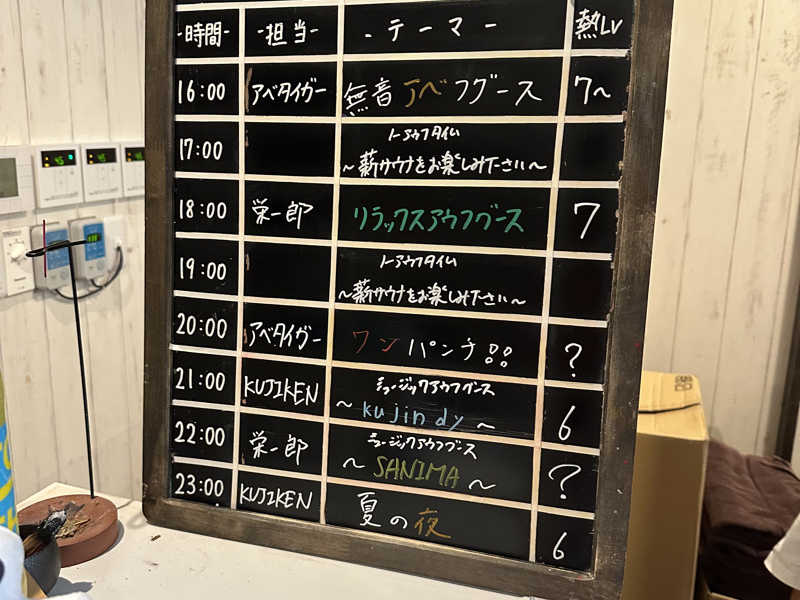 -時間- -担当- -テーマ- 熱Lv
16:00 アベタイガー 無音アベフグース 7~
17:00 ノーアウフタイム
~薪サウナをお楽しみ下さい~
18:00 栄一郎 リラックスアウフグース 7
19:00 ノーアウフタイム
~薪サウナをお楽しみ下さい~
20:00 アベタイガー ワンパンチ!! ?
21:00 KUJIKEN ミュージックアウフグース
~kujindy~ 6
22:00 栄一郎 ミュージックアウフグース
~SANIMA~ ?
23:00 KUJIKEN 夏の夜 6